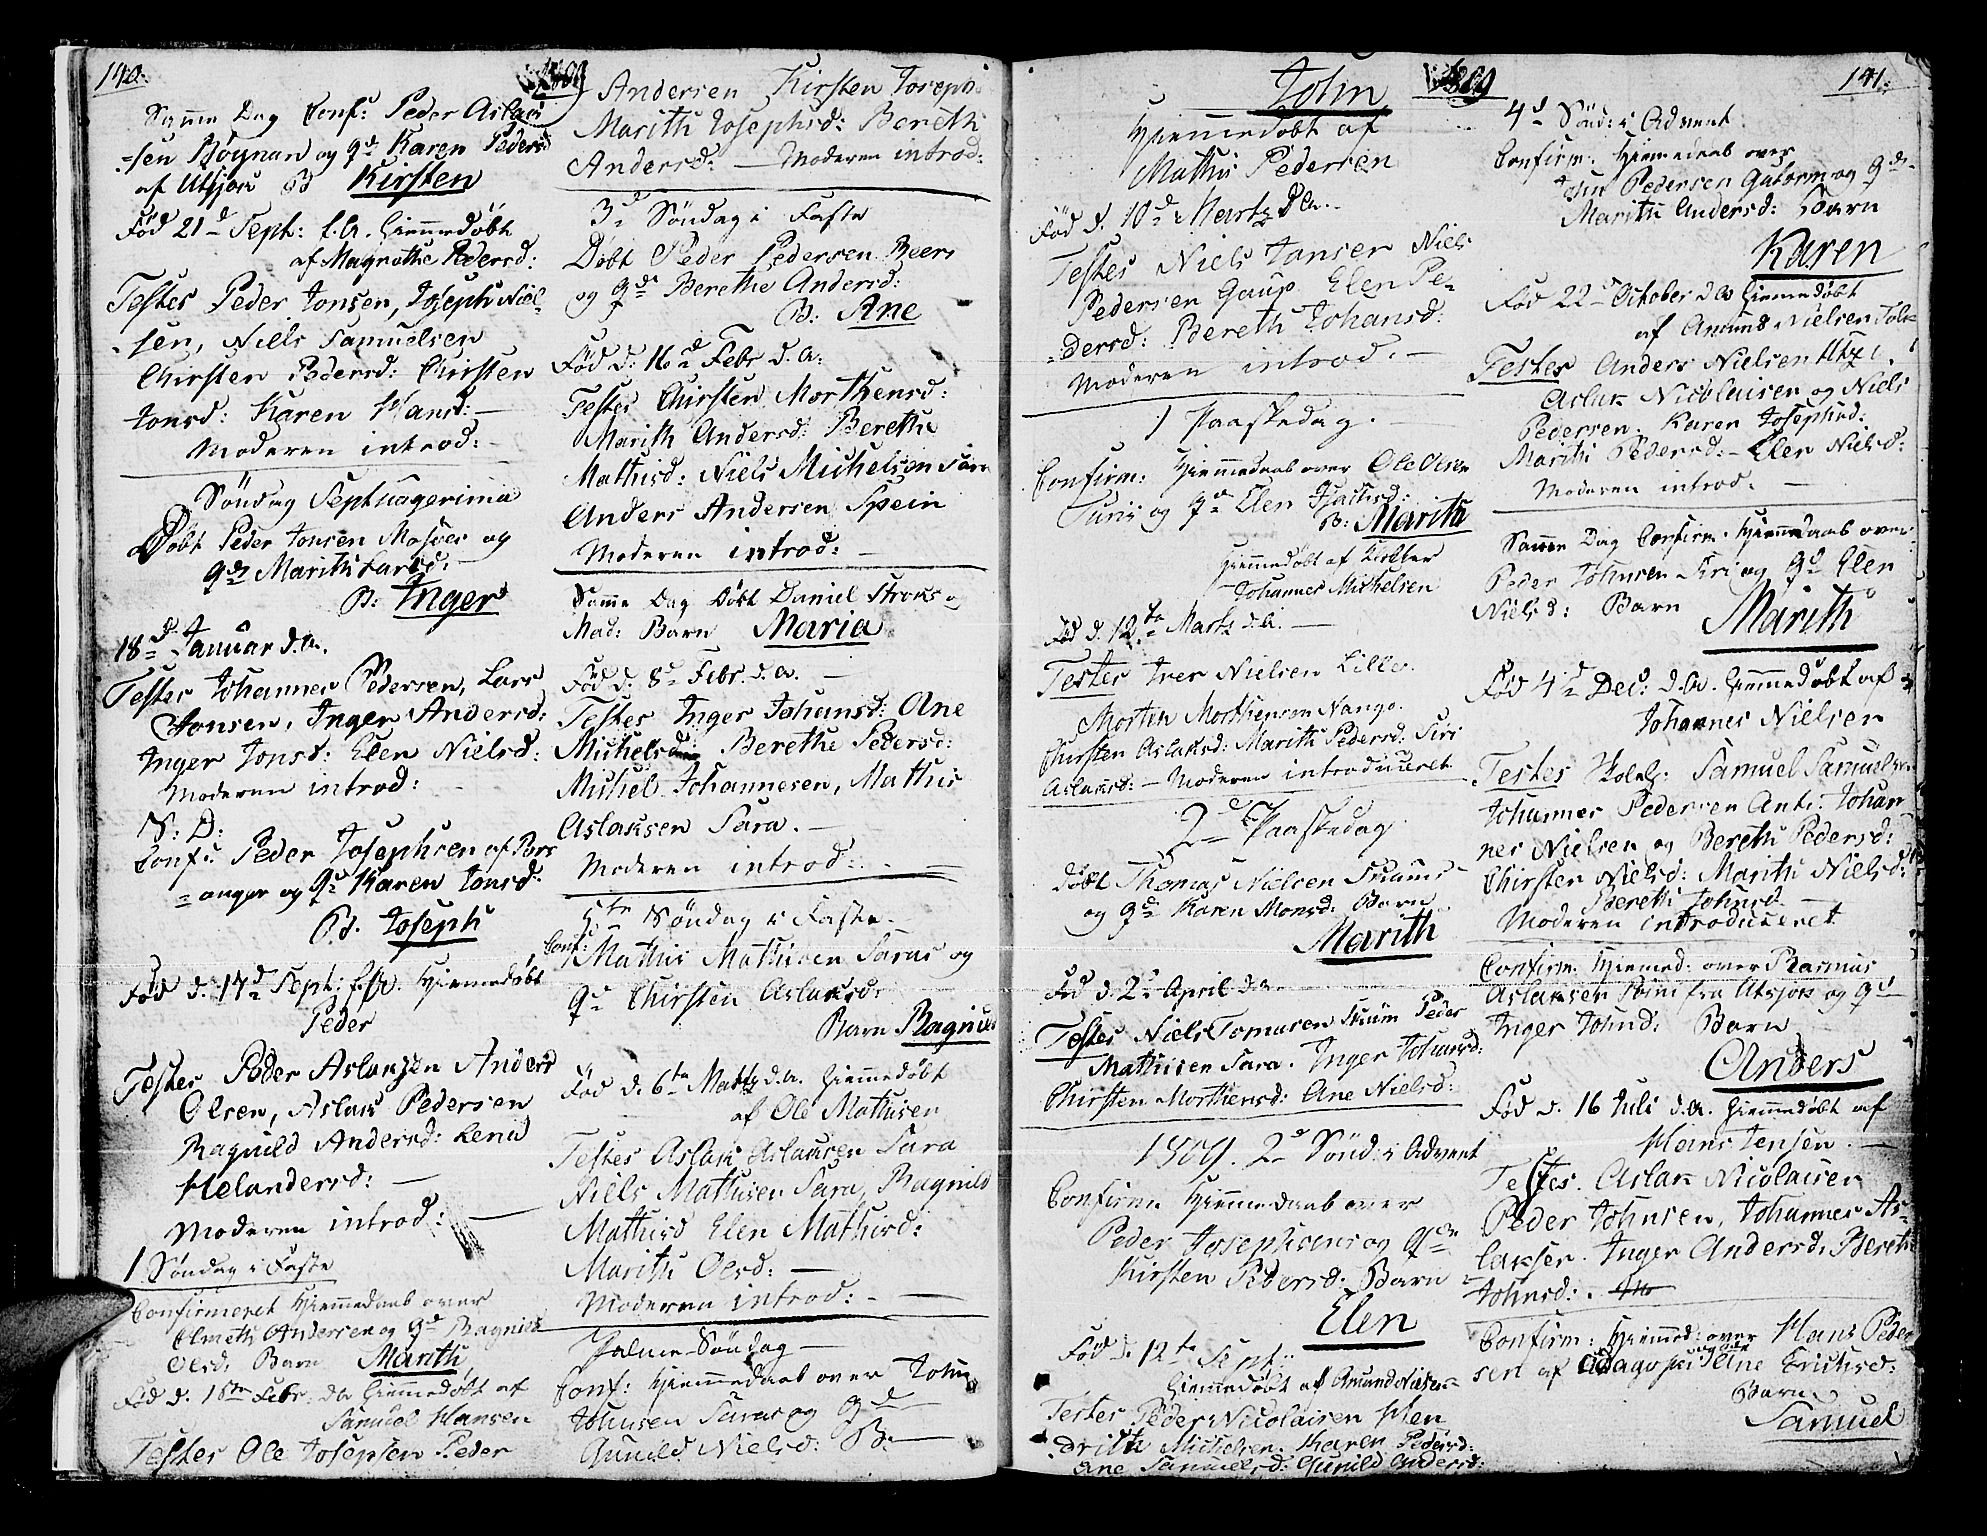 140.
1809
Samme Dag Conf: Peder Aslak
=sen Höynan og qd Karen Pedersd
af Utsjok B Kirsten
Föd 21d Sept: f.A. Hiemmedöbt
af Magrethe Pedersd:
Testes Peder Jonsen, Joseph Niel
sen, Niels Samuelsen
Chirsten Pedersd: Chirsten
Jonsd: Karen Hansd: —
Moderen introd: —
Söndag Septuagesima
Döbt Peder Jonsen Masoes og
qde Marith Larsd: —
B: Inger
18d Januar d.A.
Testes Johannes Pedersen, Lars
Jonsen, Inger Andersd:
Inger Jonsd: Elen Nielsd:
Moderen introd: —
S: D:
Conf: Peder Josephsen af Pors
=anger og qd Karen Jonsd:
B. Joseph
Föd d. 17d Sept: f.A. Hiemmedöbt
Peder
Testes Peder Aslaksen Anders
Olsen, Aslak Pedersen
Ragnild Andersd: Lena
Helandersd: —
Moderen introd: —
1 Söndag i Faste
Confirmeret Hiemmedaab over
Clemeth Andersen og qd Ragnild
Olesd. Barn Marith
Föd d. 18de Febr: da Hiemmedöbt af
Samuel Hansen
Testes Ole Josepsen Peder
Andersen Kirsten Joseph
Marith Josephsd: Bereth
Andersd: — Moderen introd:
3d Söndag i Faste
Döbt Peder Pedersen Beers
og qde Berethe Andersd:
B: Ane
Föd d: 16d Febr d.A:
Testes Chirsten Morthensd:
Marith Andersd: Berethe
Mathisd: Niels Michelsen Sara
Anders Andersen Spein
Moderen introd: —
Samme Dag Döbt Daniel Stroks
Mad: Barn Maria
Föd d: 8d Febr. d.A. —
Testes Inger Johansd: Ane
Michelsd Berethe Pedersd:
Michel Johannesen, Mathis
Aslaksen Sara. —
Moderen introd: —
5te Söndag i Faste
Conf: Mathis Mathisen Saras og
qd Chirsten Aslaksd:
Barn Ragnild
Föd d. 6te Martz d.A. Hiemmedöbt
af Ole Mathisen
Testes Aslak Aslaksen Sara
Niels Mathisen Sara, Ragnild
Mathisd Elen Mathisd:
Marith Olsd: —
Moderen introd: —
Palme-Söndag —
Conf: Hiemmedaab over John
Johnsen Saras og qd
Gunild Nielsd: B: —
1809
141.
John
Hiemmedöbt af
Mathis Pedersen
Föd d. 10d Martz d.A. —
Testes Niels Jansen Niels
Pedersen Gaup. Elen Pe-
=dersd: Bereth Johansd:
Moderen introd. —
1 Paaskedag. —
Confirm: Hiemmedaab over Ole Olsen
Turis og qd Elen
B: Marith
Hiemmedöbt af Klokker
Johannes Michelsen
Föd d. 12te Martz d.A. —
Testes Iver Nielsen Lille.
Morten Morthensen Nango.
Chirsten Aslaksd: Marith Pedersd. Siri
Aslaksd: — Moderen introduceret
2d Paaskedag
döbt Thomas Nielsen
og qd Karen Monsd: Barn
Marith
Föd d. 2d April d.A. —
Testes Niels Tomasen Peder
Mathisen Sara. Inger Johansd:
Chirsten Morthensd: Ane Nielsd:
1809. 2d Sönd: i Advent
Confirm. Hiemmedaab over
Peder Josephsens og qde
Kirsten Pedersd: Barn
Elen
Föd d: 12te Sept:
Hiemmedöbt af Amund Nielsen
Testes Peder Nicolaisen Hen
drich Michelsen. Karen Pedersd:
Ane Samuelsd: Gunild Andersd:
4d Sönd: i Advent
Confirm. Hiemmedaab over
John Pedersen Gutorm og qde
Marith Andersd: Barn
Karen
Föd 22d October d.A Hiemmedöbt
af Amund Nielsen
Testes Anders Nielsen Utzi.
Aslak Nicolaisen og Niels
Pedersen. Karen Josephsd:
Marith Pedersd: — Elen Nielsd:
Moderen introd. —
Samme Dag Confirm. Hiemmedaab over
Peder Johnsen og qd Elen
Nielsd: Barn Marith
Föd 4d Dec: d.A. Hiemmedöbt af
Johannes Nielsen
Testes Samuel Samuelsen
Johannes Pedersen Johan
nes Nielsen og Bereth Pedersd:
Chirsten Nielsd: Marith Nielsd:
Bereth Johnsd
Moderen introduceret
Confirm. Hiemmed: over Rasmus
Aslaksen fra Utsjok og qd
Inger Johnsd: Barn
Anders
Föd d. 16 Juli d.A. Hiemmedöbt af
Hans Jensen. —
Testes. Aslak Nicolaisen
Peder Johnsen, Johannes As-
laksen. Inger Andersd. Bereth
Johnsd: .
Confirm: Hiemmed: over Hans Peder
sen af og qde Ane Erichsd:
Barn
Samuel